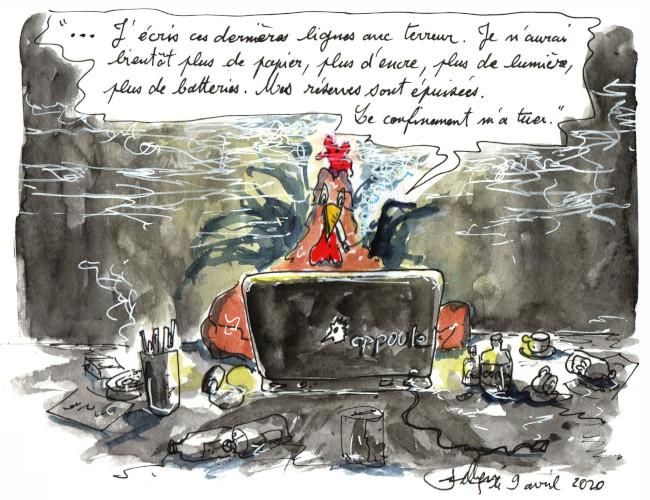 "... J'écris ces dernières lignes avec terreur. Je n'aurai
bientôt plus de papier, plus d'encre, plus de lumière,
plus de batteries. Mes réserves sont épuisées.
Le confinement m'a tuer."
appoule
le 9 avril 2020